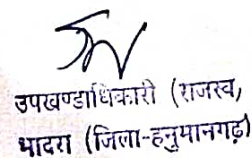 उपखण्डाधिकारी (राजस्व,
भादरा (जिला-हनुमानगढ़)